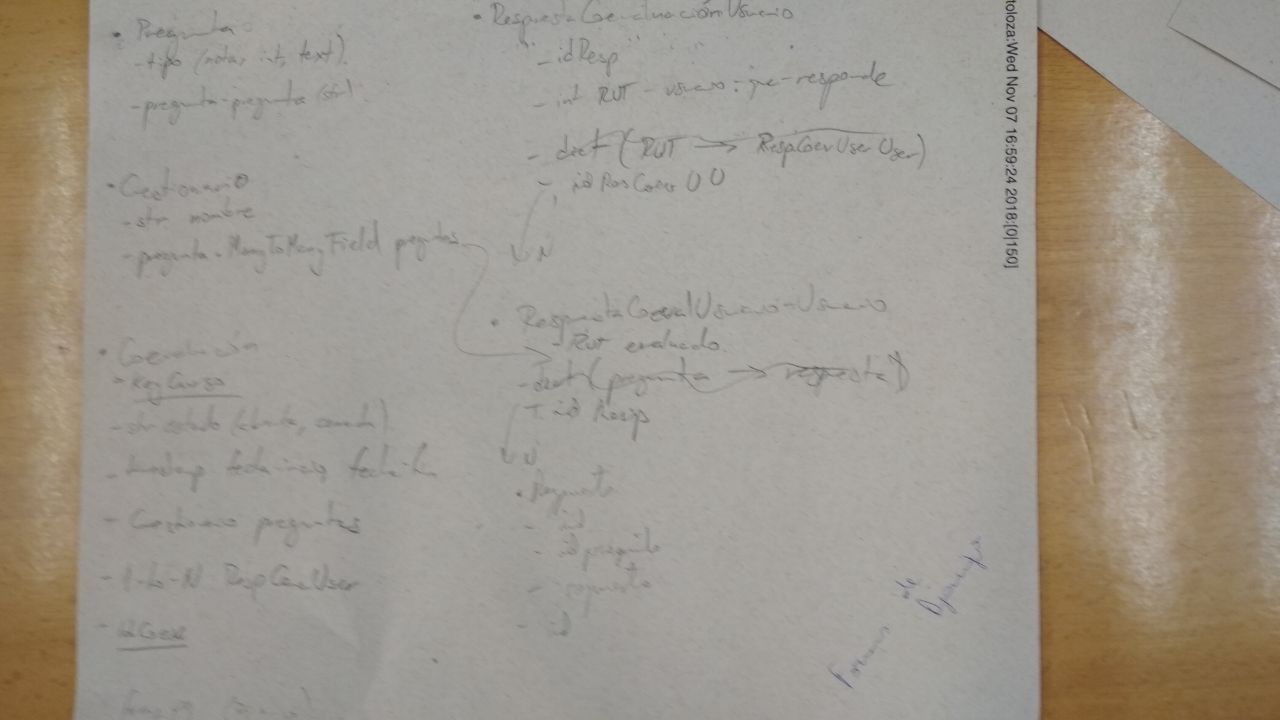 • Pregunta
- tipo (nota, int, text).
- pregunta-pregunta (str)
• Cestionario
- str nombre
- pregunta. ManyToManyField pregutas
• Coevaluación
- KeyCurso
- str estado (abierta, cerrada)
- timestamp fecha-inicio, fecha-fin
- Cestionario preguntas
- 1-to-N RespCoevUser
- idCoev
• RespuestaCoevaluaciónUsuario
- idResp
- int RUT-usuario-que-responde
- dict (RUT → RespCoevUserUser)
- idResCoevUU
N
• RespuestaCoevalUsuario-Usuario
- RUT evaluado.
- dict (pregunta → respuesta)
- id Resp
N
• Respuesta
- id
- id pregunta
- respuesta
- id
toloza:Wed Nov 07 16:59:24 2018:[0|150]
de